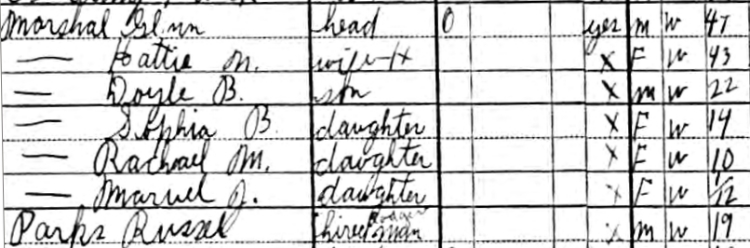 Marshal Glenn head O yes M W 47
— Hattie M. wife-H X F W 43
— Doyle B. son X M W 22
— Sophia B. daughter X F W 14
— Rachael M. daughter X F W 10
— Marvel J. daughter X F W /12
Parks Russel hired man X M W 19